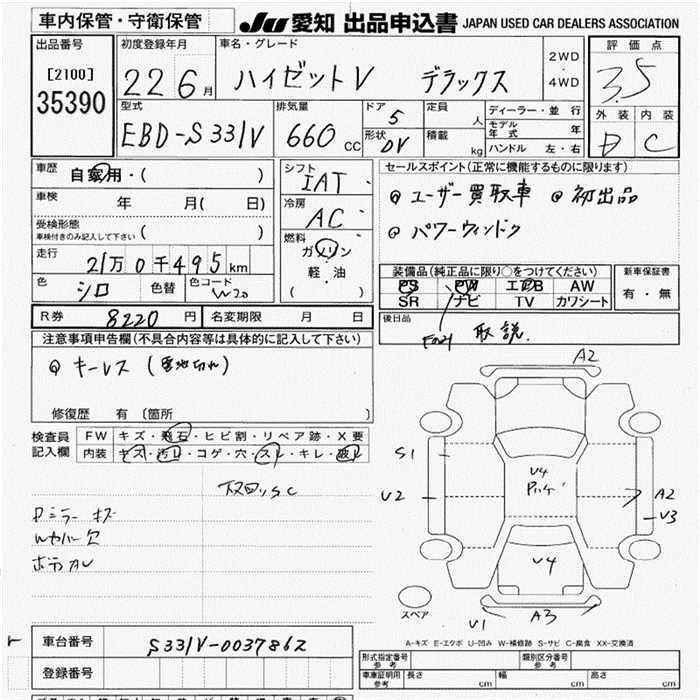 車内保管・守衛保管
JU 愛知 出品申込書 JAPAN USED CAR DEALERS ASSOCIATION
出品番号
[2100]
35390
初度登録年月
22 6月
車名・グレード
ハイゼットV デラックス
2WD
・
4WD
評価点
3.5
外装 内装
D C
型式
EBD-S331V
排気量
660 CC
ドア
5
形状
DV
定員
人
積載
kg
ディーラー・並行
モデル年式 年
ハンドル 左・右
車歴
自家用・( )
車検
年 月( 日)
受検形態
車検付きのみ記入して下さい ( )
走行
21万0千495km
色
シロ
色替
色コード
W20
シフト
IAT
冷房
AC
燃料
ガソリン
軽・油
( )
セールスポイント(正常に機能するものに限ります)
◎ユーザー買取車 ◎初出品
◎パワーウィンドウ
装備品(純正品に限り○をつけてください)
PS PW エアB AW
SR ナビ TV カワシート
新車保証書
有・無
後日品
取説.
R券 8220円
名変期限 月 日
注意事項申告欄(不具合内容等は具体的に記入して下さい)
◎キーレス(電池切れ)
修復歴 有 〔箇所 〕
検査員
記入欄
FW キズ・飛石・ヒビ割・リペア跡・X要
内装 キズ・汚レ・コゲ・穴・スレ・キレ・破レ
Dミラーキズ
Wカバー欠
A2
S1
U2
U4
A2
U3
U4
U1
A3
スペア
A-キズ E-エクボ U-凹み W-補修跡 S-サビ C-腐食 XX-交換済
車台番号
S331V-0037862
登録番号
型式指定番号
参考
類別区分番号
参考
車庫証明用
参考
長さ cm
幅 cm
高さ cm